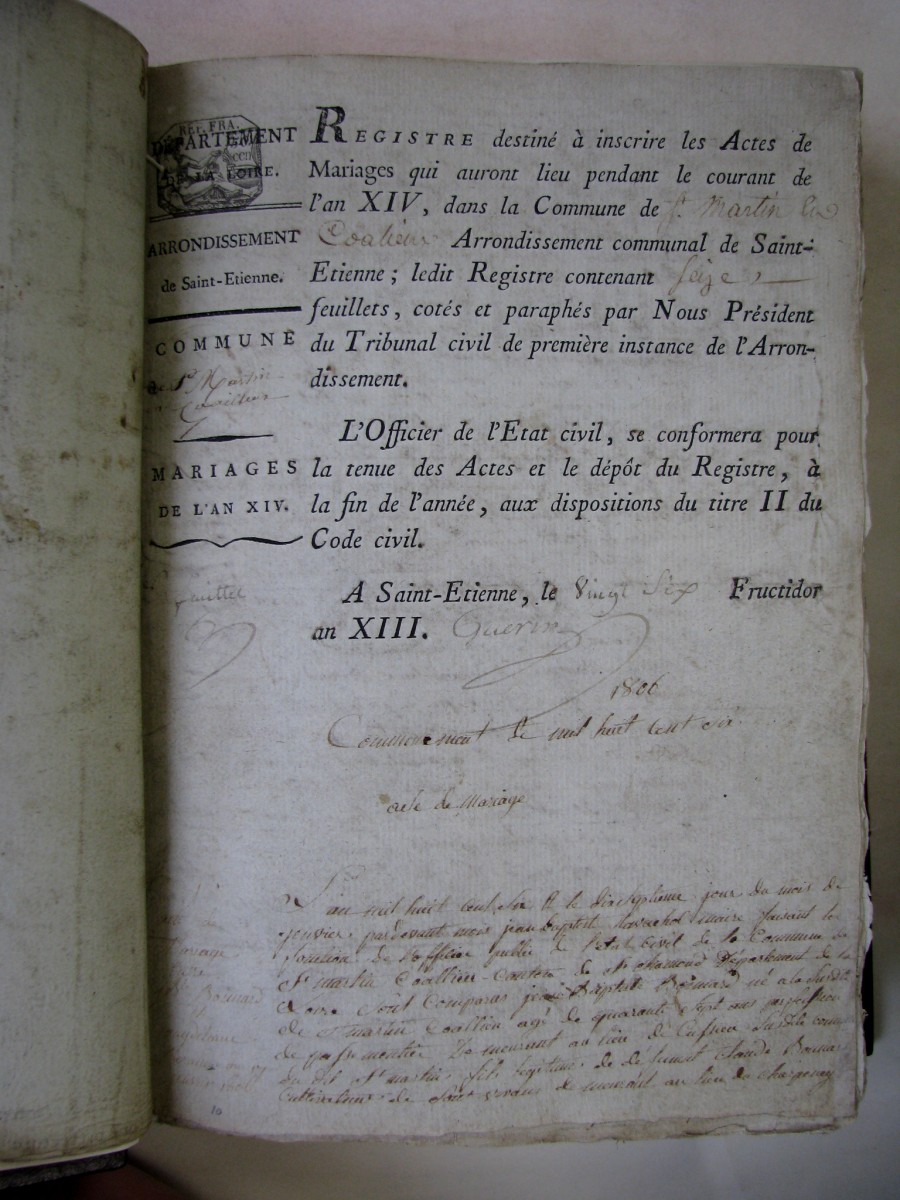 RÉP. FRA.
DÉPARTEMENT
DE LA LOIRE.
ARRONDISSEMENT
de Saint-Etienne.
COMMUNE
de St Martin
Coailleux
MARIAGES
DE L'AN XIV.
REGISTRE destiné à inscrire les Actes de
Mariages qui auront lieu pendant le courant de
l'an XIV, dans la Commune de St. Martin
Coalieu Arrondissement communal de Saint-
Etienne ; ledit Registre contenant seize
feuillets, cotés et paraphés par Nous Président
du Tribunal civil de première instance de l'Arron-
dissement.
L'Officier de l'Etat civil, se conformera pour
la tenue des Actes et le dépôt du Registre, à
la fin de l'année, aux dispositions du titre II du
Code civil.
A Saint-Etienne, le vingt six Fructidor
an XIII. Guerin
1806
Commencement de mil huit cent six
acte de Mariage
L'an mil huit cent six & le dixseptieme jour du mois de
janvier pardevant nous jean baptiste Ravachol maire faisant les
fonction de l'officier public de l'état civil de la Commune de
St martin Coallieu Canton de St chamond Département de la
Loire sont Comparus jean Baptiste Boimard né a la susdite
de St martin Coallieu agé de quarante sept ans proffession
de demeurant au lieu de susdite
du dit St martin fils legitime de defunct Claude Boimard
Cultivateur de demeurant au lieu de